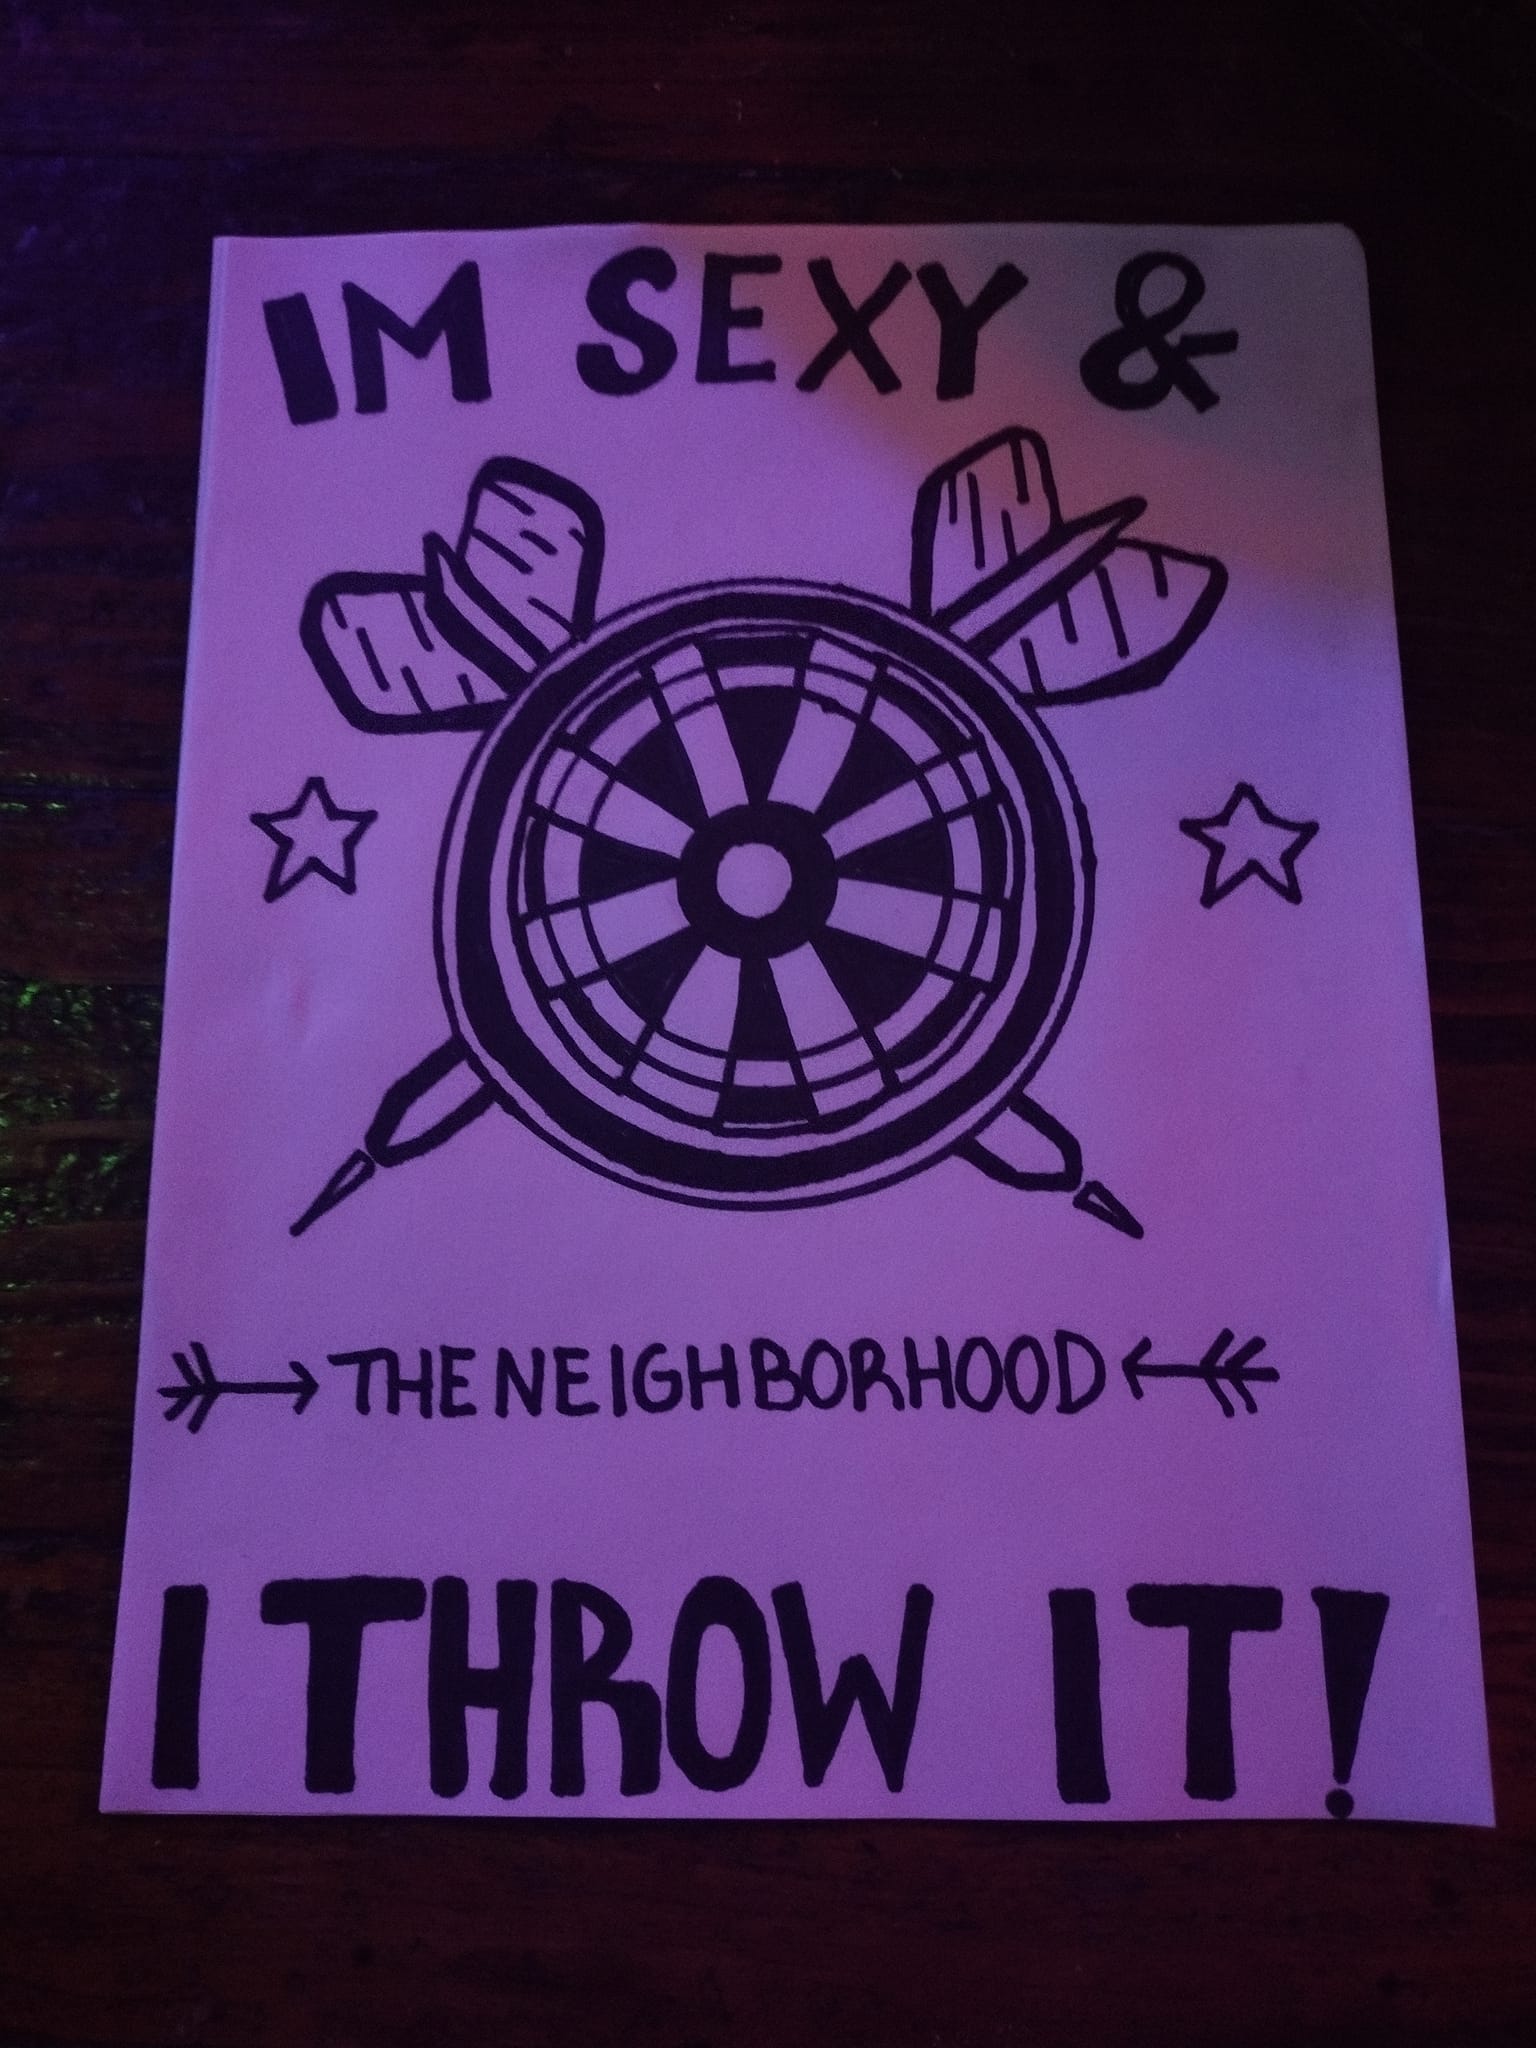 IM SEXY &
THE NEIGHBORHOOD
I THROW IT!